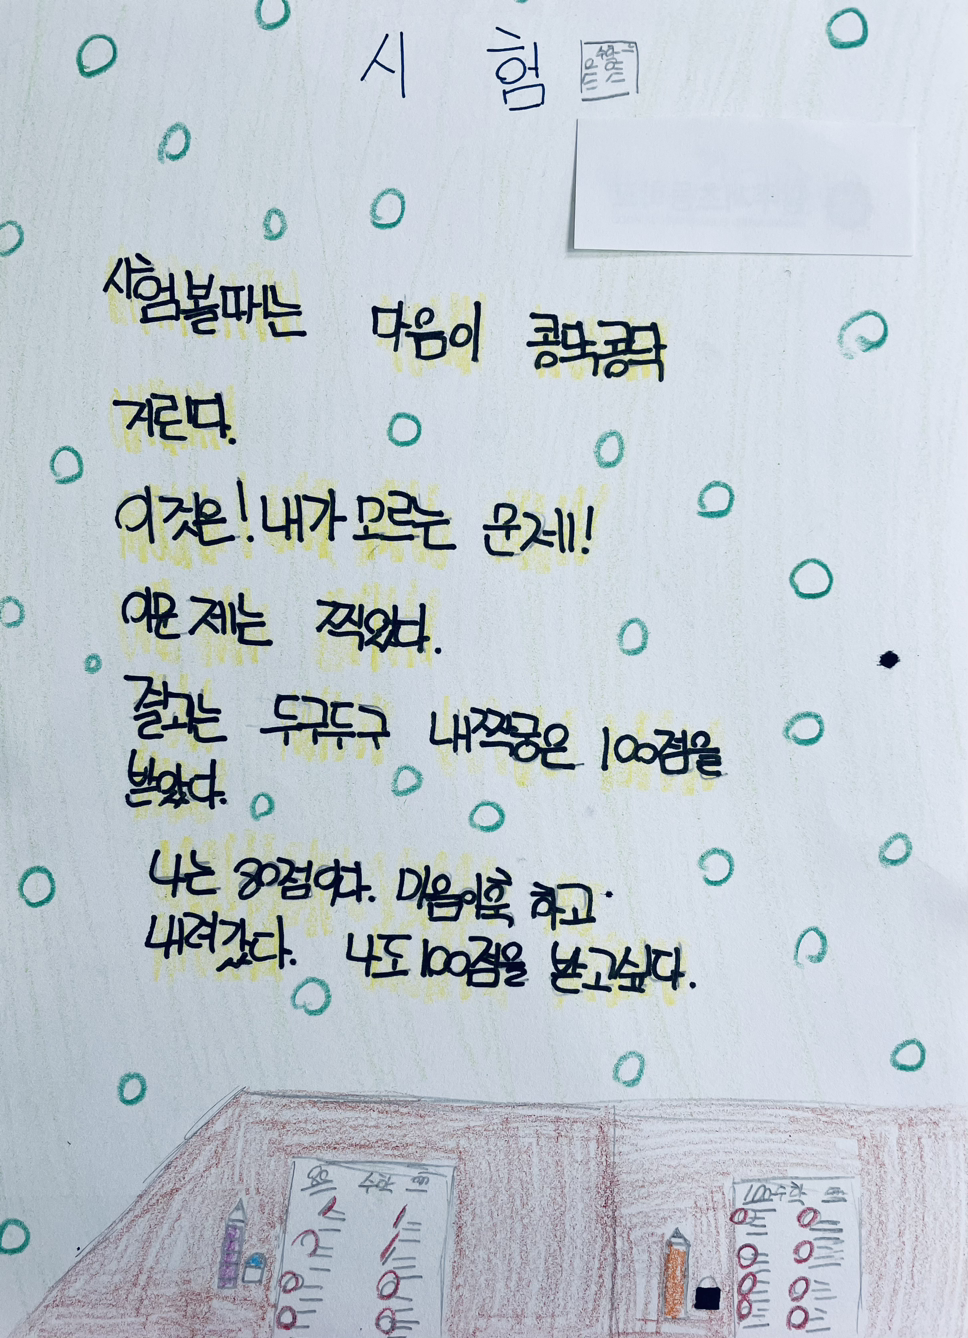 시험
수학
시험볼때는 마음이 콩닥콩닥
거린다.
이것은! 내가 모르는 문제!
이문제는 찍었다.
결과는 두구두구 내짝궁은 100점을
받았다.
나는 80점이다. 마음이훅 하고
내려갔다. 나도 100점을 받고싶다.
80 수학
100 수학